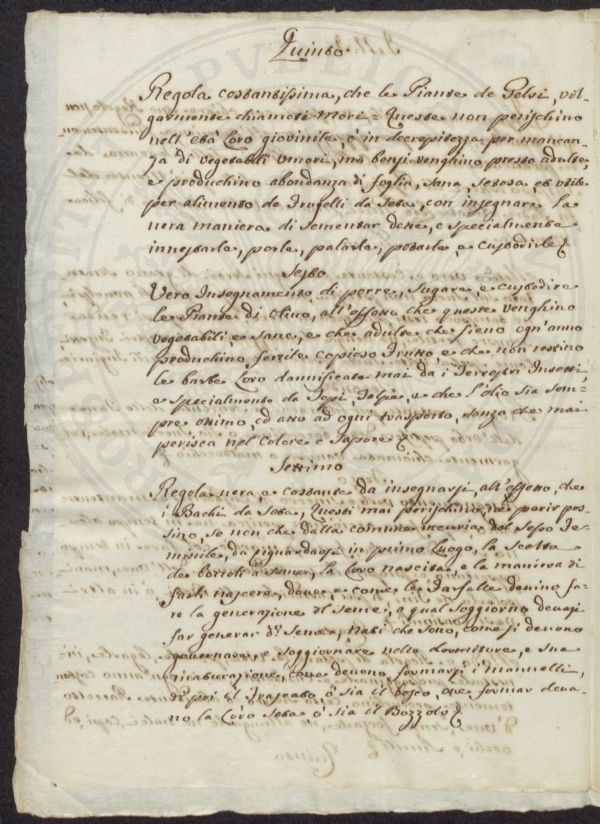 Quinto
Regola costantissima, che le Piante de Gelsi, vol-
garmente chiamati Mori = Queste non perischino
nell'età Loro giovinile, ò in decrepitezza per mancan-
za di vegetabili Umori, ma bensi venghino presto adulte,
e produchino abondanza di foglia, sana, setosa, et utile
per alimento de Trufelli da Seta, con insegnare la
vera maniera di sementar dette, e specialmente
innestarle, porle, palarle, potarle e Custodirle
Sesto
Vero Insegnamento di porre, sugare, e custodire
le Piante di Olivo, all'effetto, che queste venghino
vegetabili e sane, e che adulte che sieno ogn'anno
produchino fertile copioso frutto, e che non restino
le barbe Loro dannificate mai da i Terrestri Insetti
e specialmente da Topi Talpe, e che l'olio sia sem=
pre ottimo, ed atto ad ogni trasporto, senza che mai
perisca nel Colore e Sapore
Settimo
Regola vera, e costante da insegnarsi, all'effetto, che
i Bachi da Seta, Questi mai perischino, ne perir pos-
sino, se non che dalla comune incuria del Sesso Fe-
minile, da riguardarsi in primo Luogo, la Scelta
de bozzoli a seme, la Loro nascita, e la maniera di
farli nascere, dove, e come le Farfalle devino fa-
re la generazione del seme, a qual soggiorno devasi
far generar do. Seme, Nati che sono, come si devono
governare, e soggiornare nelle dormiture, e sua
come devono formarsi i Mannelli,
di poi il Frascato ò sia il bosco, ove formar deva-
no la Loro Seta ò sia il Bozzolo
Quinto